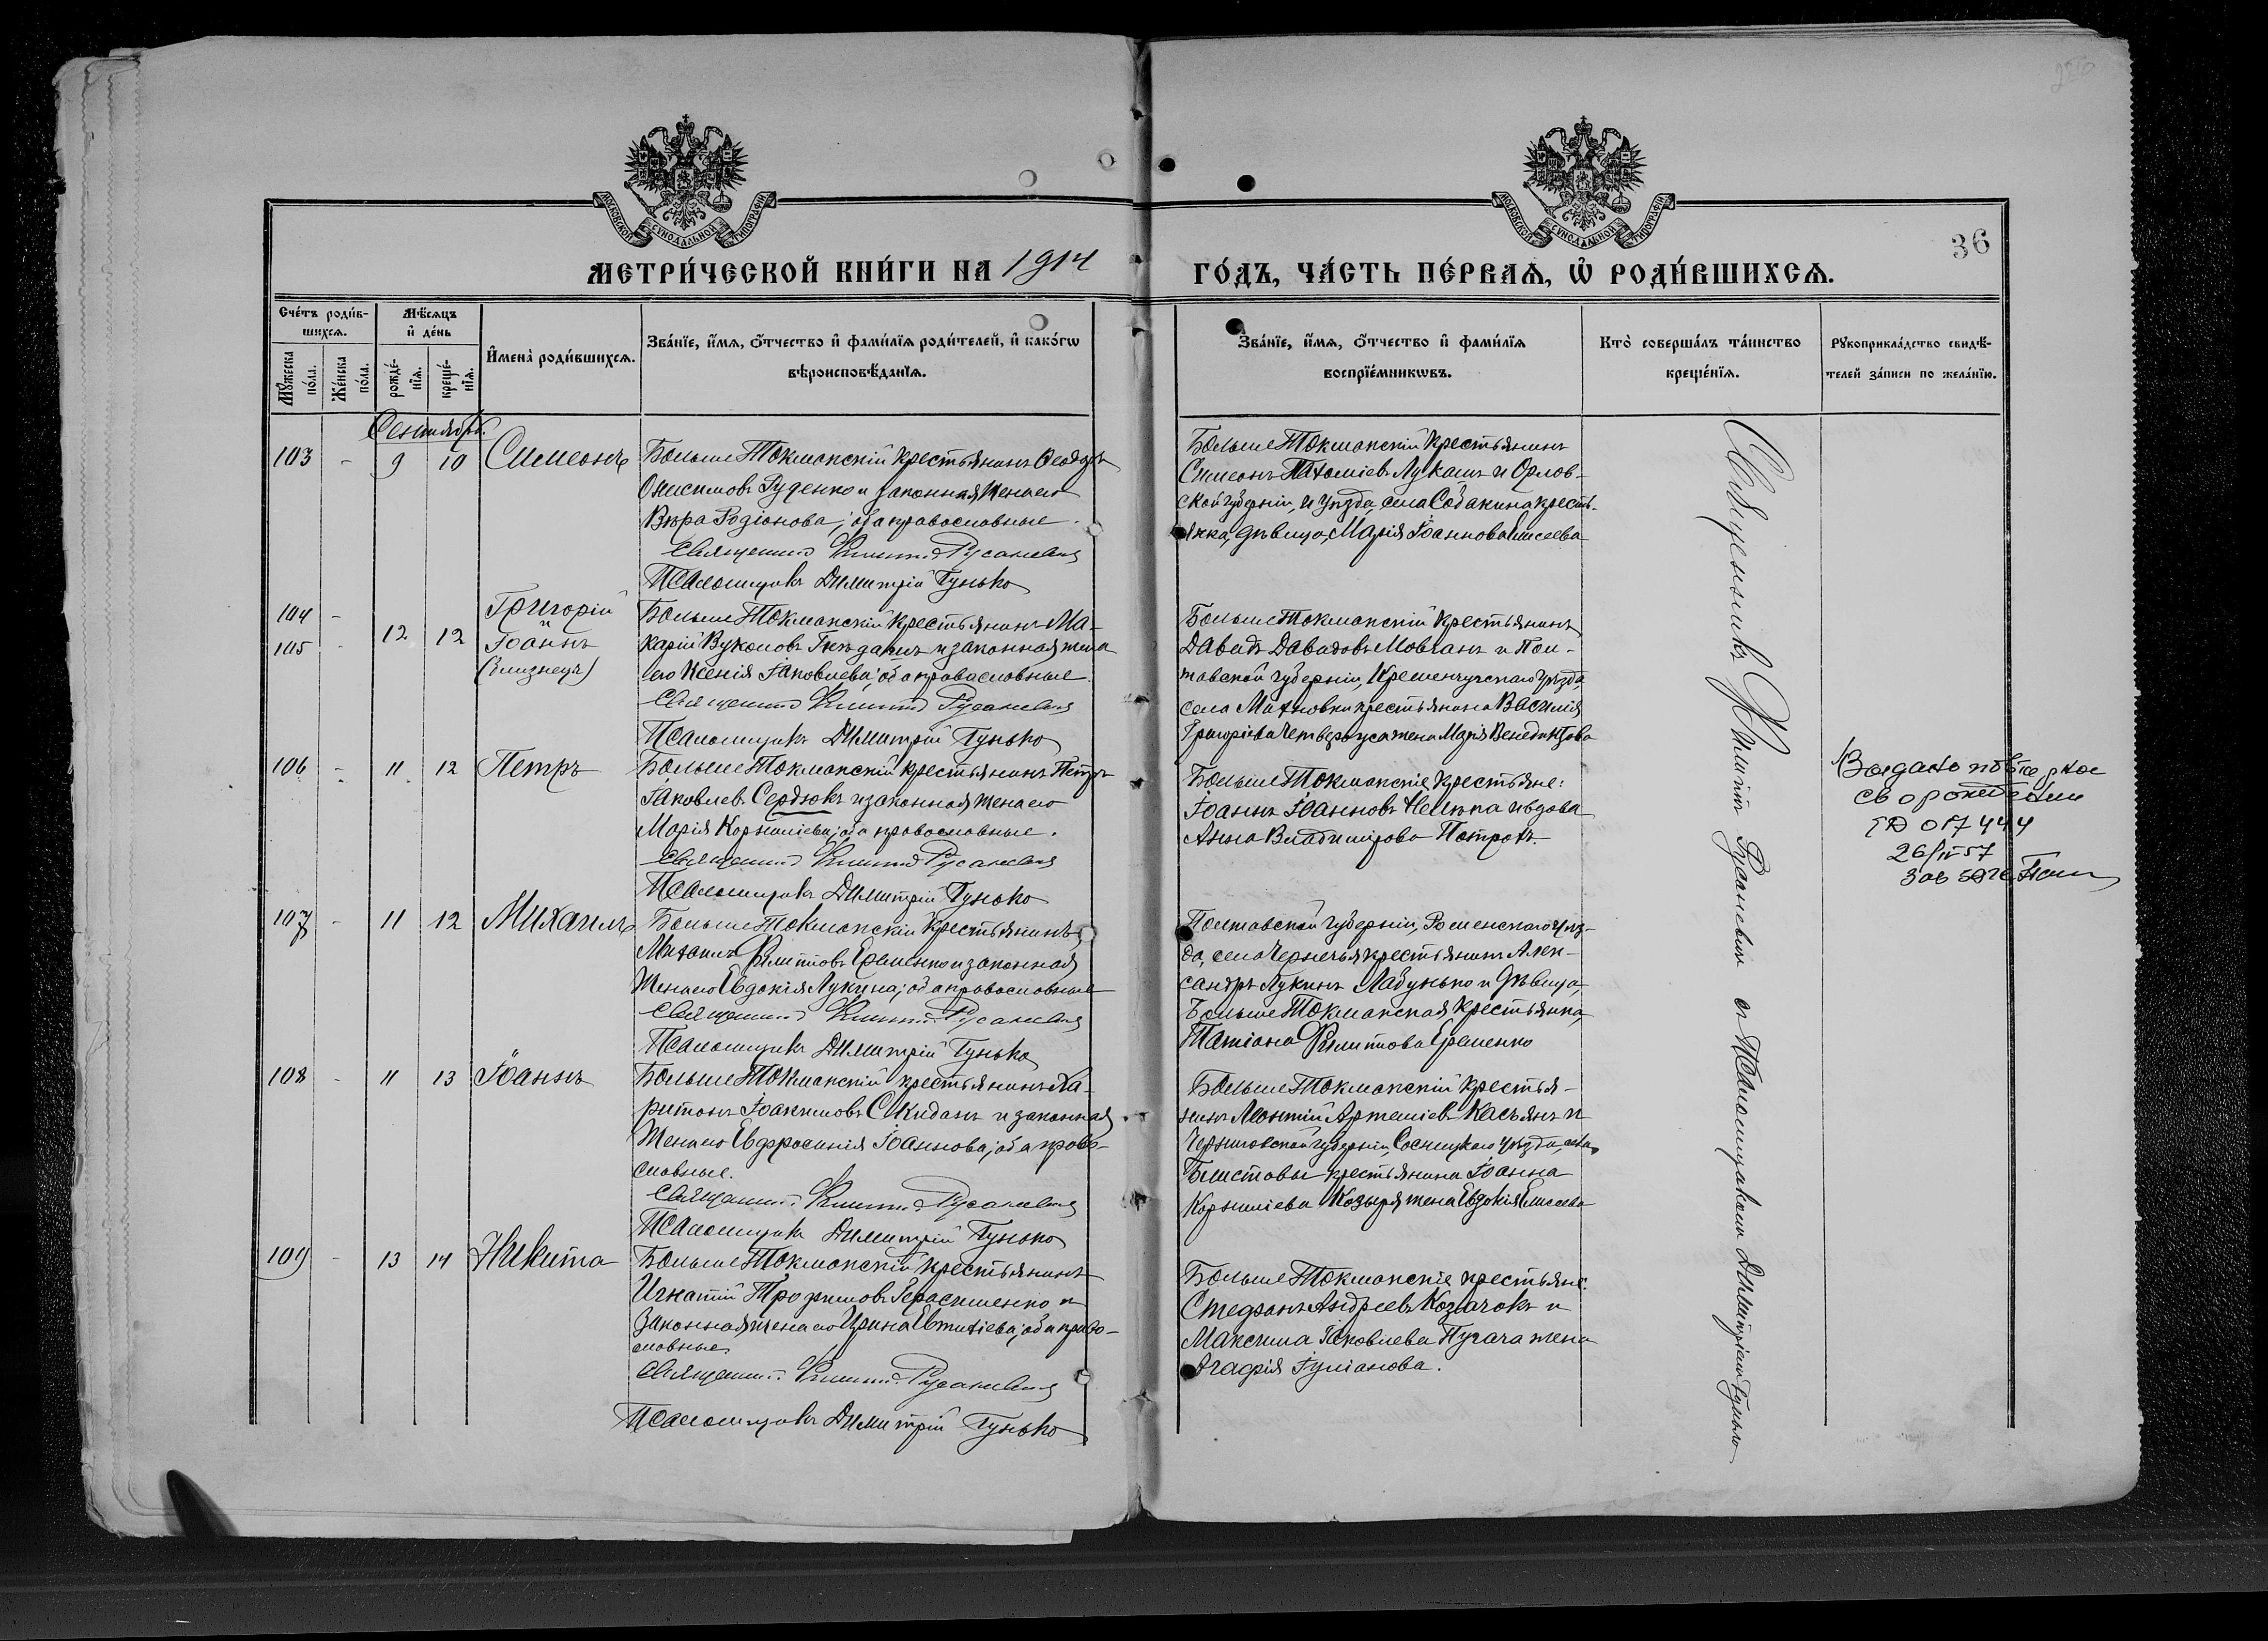 250
МОСКОВСКОЙ СѴНОДАЛЬНОЙ ТИПОГРАФІИ
МОСКОВСКОЙ СѴНОДАЛЬНОЙ ТИПОГРАФІИ
36
МЕТРИ́ЧЕСКОЙ КНИ́ГИ НА 1914
ГО́ДЪ, ЧА́СТЬ ПЕ́РВАѦ, Ѡ҆ РОДИ́ВШИХСѦ.
Сче́тъ роди́в-
шихсѧ.
Мꙋ́жеска по́ла.
Же́нска по́ла.
Мѣ́сѧцъ
и҆ де́нь
рожде́-
нїѧ.
креще́-
нїѧ.
И҆мена̀ роди́вшихсѧ.
Зва́нїе, и҆́мѧ, ѻ҆́тчество и҆ фами́лїѧ роди́телей, и҆ како́гѡ
вѣроисповѣ́данїѧ.
Зва́нїе, и҆́мѧ, ѻ҆́тчество и҆ фами́лїѧ
воспрїе́мникѡвъ.
Кто̀ соверша́лъ та́инство
креще́нїѧ.
Рꙋкоприкла́дство свидѣ́-
телей за́писи по жела́нїю.
Сентябрь.
103 - 9 10 Симеонъ
Больше Токмакскій крестьянинъ Ѳеодоръ
Онисимовъ Руденко и законная жена его
Вѣра Родіонова; оба православные.
Священникъ Филиппъ Русаневичъ
Псаломщикъ Димитрій Гунько
Больше Токмакскій крестьянинъ
Симеонъ Пахоміевъ Лукашъ и Орлов-
ской губерніи, и уѣзда, села Собакина кресть-
янка, дѣвица, Марія Іоаннова Елисеева
104 -
105 -
12 12
Григорій
и
Іоаннъ
(близнецы)
Больше Токмакскій крестьянинъ Ма-
карій Вуколовъ Гнѣдашъ и законная жена
его Ксенія Іаковлева; оба православные.
Священникъ Филиппъ Русаневичъ
Псаломщикъ Димитрій Гунько
Больше Токмакскій крестьянинъ
Давидъ Давидовъ Мовчанъ и Пол-
тавской губерніи, Кременчугскаго уѣзда,
села Махновки крестьянина Василія
Григоріева Четвероуса жена Марія Венедиктова
106 - 11 12 Петръ
Больше Токмакскій крестьянинъ Петръ
Іаковлевъ Сердюкъ и законная жена его
Марія Корниліева; оба православные.
Священникъ Филиппъ Русаневичъ
Псаломщикъ Димитрій Гунько
Больше Токмакскіе крестьяне:
Іоаннъ Іоанновъ Нелѣпа и вдова
Анна Владимірова Петрохъ.
Выдано повторное
св о рождении
017444
26/IV 57
107 - 11 12 Михаилъ
Больше Токмакскій крестьянинъ
Михаилъ Филипповъ Еременко и законная
жена его Евдокія Лукина; оба православные
Священникъ Филиппъ Русаневичъ
Псаломщикъ Димитрій Гунько
Полтавской губерніи, Роменскаго уѣз-
да, села Чернечья крестьянинъ Алек-
сандръ Лукинъ Лабунько и дѣвица,
Больше Токмакская крестьянка,
Татіана Филиппова Еременко
108 - 11 13 Іоаннъ
Больше Токмакскій крестьянинъ Ха-
ритонъ Іоакимовъ Скиданъ и законная
жена его Евфросинія Іоаннова; оба право-
славные.
Священникъ Филиппъ Русаневичъ
Псаломщикъ Димитрій Гунько
Больше Токмакскій крестья-
нинъ Леонтій Артеміевъ Касьянъ и
Черниговской губерніи, Сосницкаго уѣзда, села
Блистовы крестьянина Іоанна
Корниліева Козыря жена Евдокія Елисеева
109 - 13 14 Никита
Больше Токмакскій крестьянинъ
Игнатій Трофимовъ Герасименко и
законная жена его Ирина Евтихіева; оба право-
славные.
Священникъ Филиппъ Русаневичъ
Псаломщикъ Димитрій Гунько
Больше Токмакскіе крестьяне:
Стефанъ Андреевъ Козачокъ и
Максима Іаковлева Пугача жена
Агафія Іуліанова.
Священникъ Филиппъ Русаневичъ съ Псаломщикомъ Димитріемъ Гунько